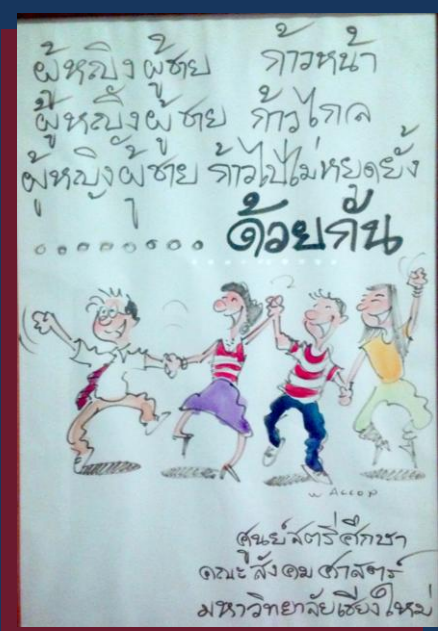 ผู้หญิงผู้ชาย ก้าวหน้า
ผู้หญิงผู้ชาย ก้าวไกล
ผู้หญิงผู้ชาย ก้าวไปไม่หยุดยั้ง
......... ด้วยกัน
ศูนย์สตรีศึกษา
คณะสังคมศาสตร์
มหาวิทยาลัยเชียงใหม่